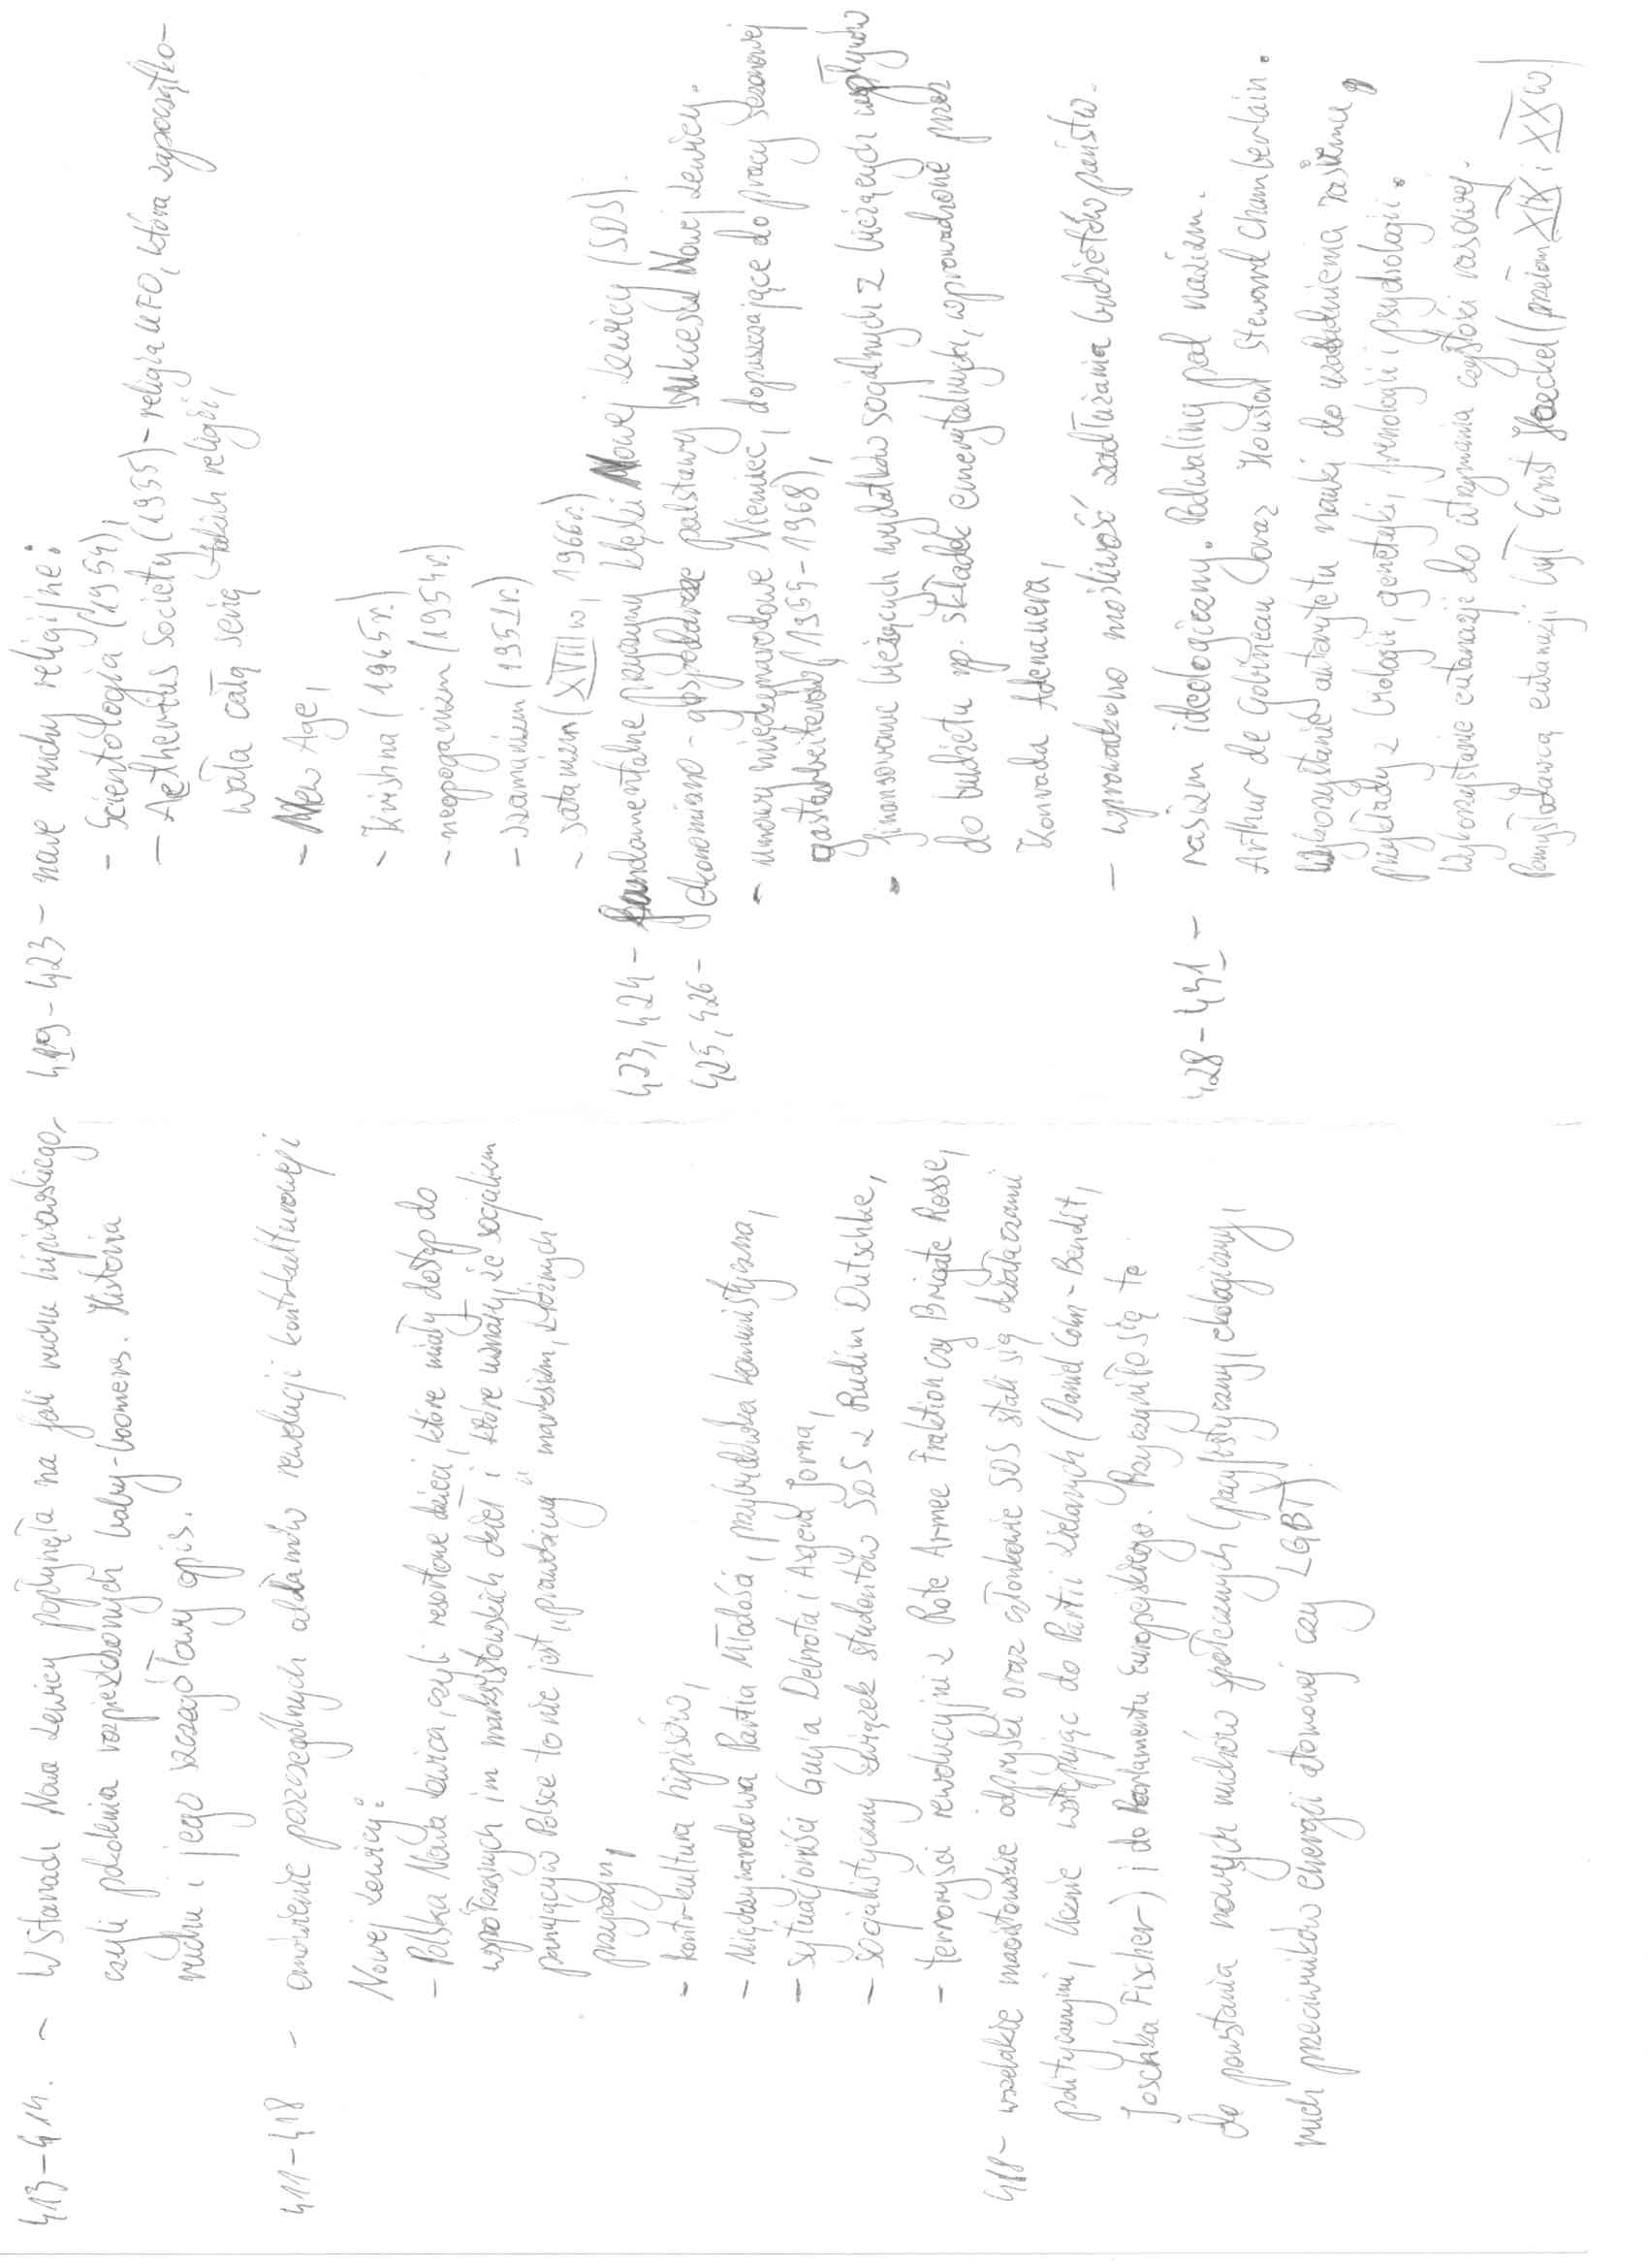 413-414. - W Stanach Nowa Lewica popłynęła na fali ruchu hipisowskiego,
czyli pokolenia rozpieszczonych baby-boomers. Historia
ruchu i jego szczegółowy opis.
411-418 - omówienie poszczególnych odłamów rewolucji kontrkulturowej i
Nowej Lewicy:
- Polska Nowa Lewica, czyli resortowe dzieci, które miały dostęp do
współczesnych im marksistowskich dzieł i które uznały, że socjalizm
panujący w Polsce to nie jest "prawdziwy" marksizm, z różnych
przyczyn,
- kontrkultura hipisów,
- Międzynarodowa Partia Młodości, przybudówka komunistyczna,
- sytuacjoniści Guy'a Debrota i Asgera Jorna,
- socjalistyczny związek studentów SDS z Rudim Dutschke,
- terroryści rewolucyjni z Rote Armee Fraktion czy Brigate Rosse,
418- wszelakie maoistowskie odpryski oraz członkowie SDS stali się działaczami
politycznymi, licznie wstępując do Partii Zielonych (Daniel Cohn-Bendit,
Joschka Fischer) i do Parlamentu Europejskiego. Przyczyniło się to
do powstania nowych ruchów społecznych (pacyfistyczny, ekologiczny,
ruch przeciwników energii atomowej czy LGBT)
419-423 - nowe ruchy religijne:
- Scientologia (1954),
- Aetherius Society (1955) - religia UFO, która zapoczątko-
wała całą serię takich religii,
- New Age,
- Krishna (1965r.)
- neopoganizm (1954r.)
- szamanizm (1952r.)
- satanizm (XVIII w, 1966r.)
423, 424 - fundamentalne przyczyny klęski Nowej Lewicy (SDS).
425, 426 - ekonomiczno-gospodarcze podstawy sukcesu Nowej Lewicy.
- umowy międzynarodowe Niemiec, dopuszczające do pracy sezonowej
gastarbeiterów (1955-1968),
- finansowanie bieżących wydatków socjalnych z bieżących wpływów
do budżetu np. składek emerytalnych, wprowadzone przez
Konrada Adenauera,
- wprowadzono możliwość zadłużania budżetów państw.
428-431 - rasizm ideologiczny. Podwaliny pod nazizm.
Arthur de Gobineau oraz Houston Steward Chamberlain.
Wykorzystanie autorytetu nauki do uzasadnienia rasizmu,
przykłady z biologii, genetyki, frenologii i psychologii.
Wykorzystanie eutanazji do utrzymania czystości rasowej.
Pomysłodawcą eutanazji był Ernst Haeckel (przełom XIX i XX w)